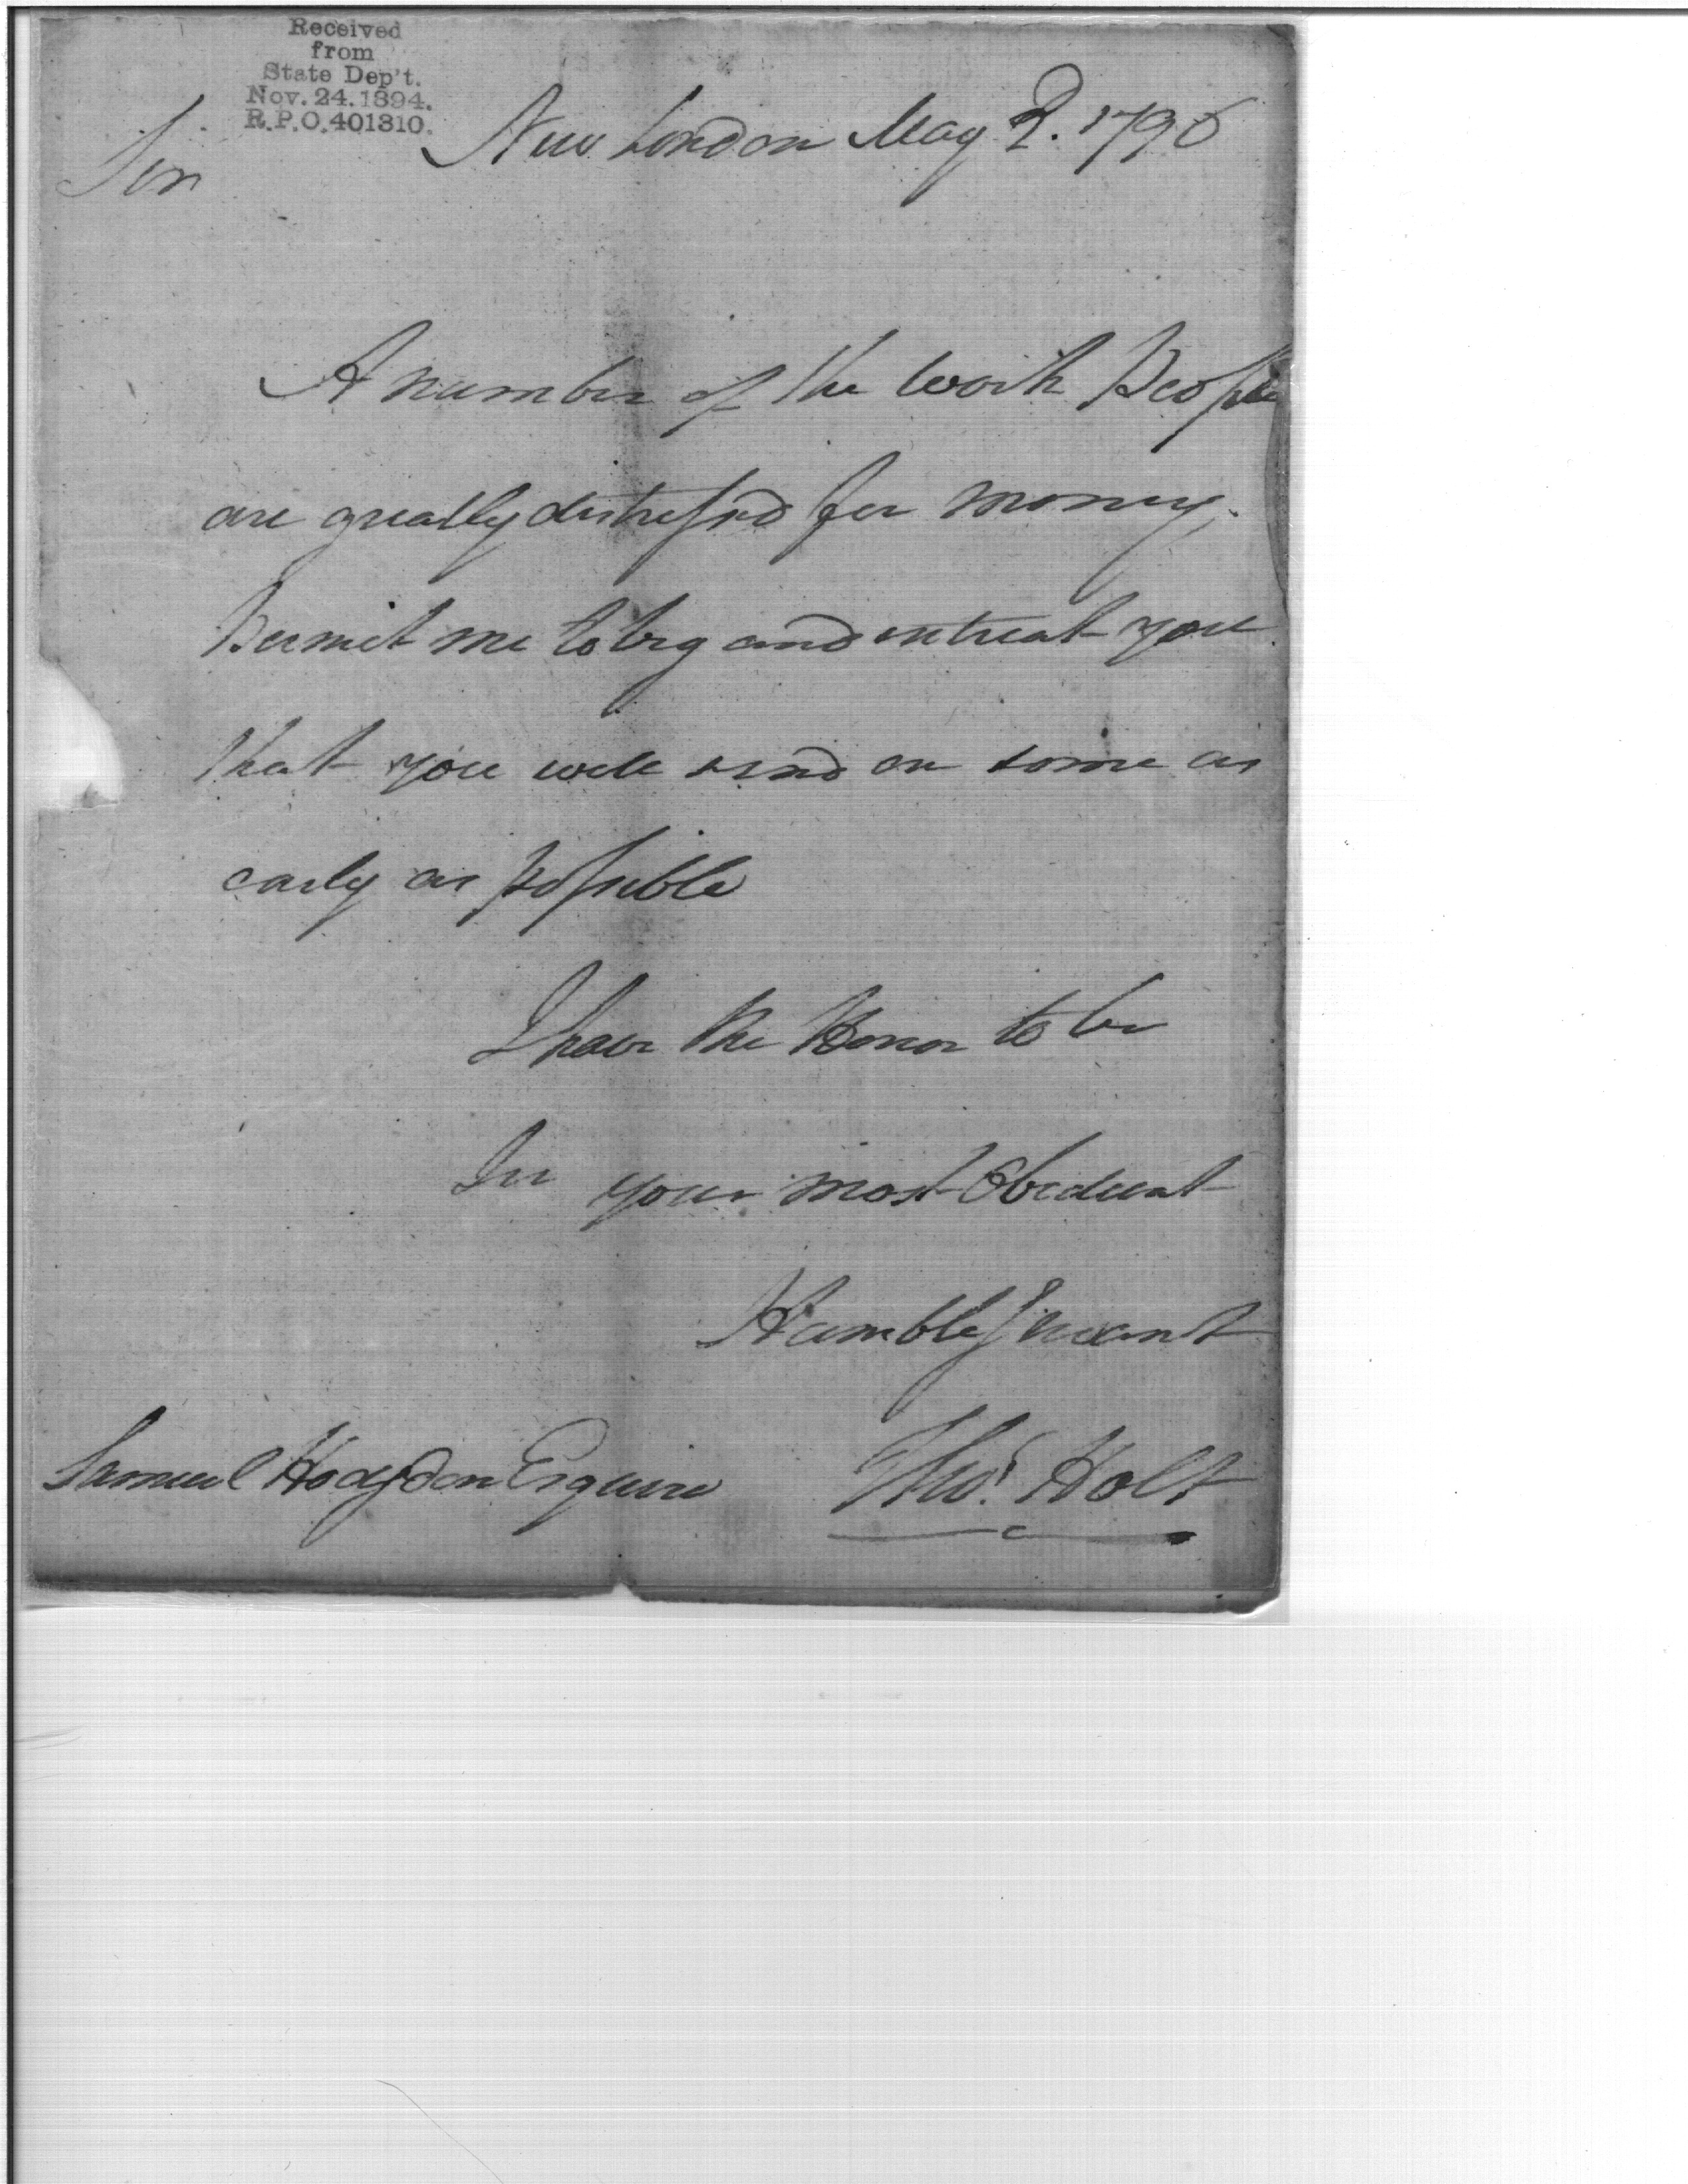 Received
from
State Dep't.
Nov. 24. 1894.
R.P.O. 401310.
New London May 2. 1796
Sir
A number of the work People
are greatly distressed for money.
Permit me to beg and intreat you
that you will send on some as
early as possible
I have the Honor to be
Sir your most Obedient
Humble Servant
Samuel Hodgdon Esquire Thos. Holt